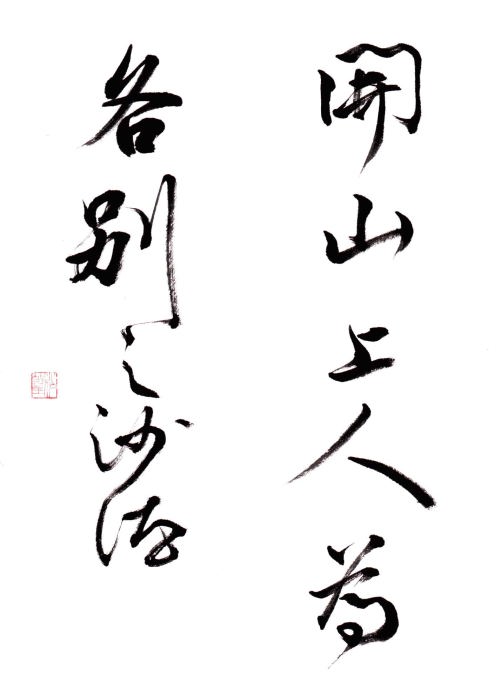 開山上人為
各別之沙汰